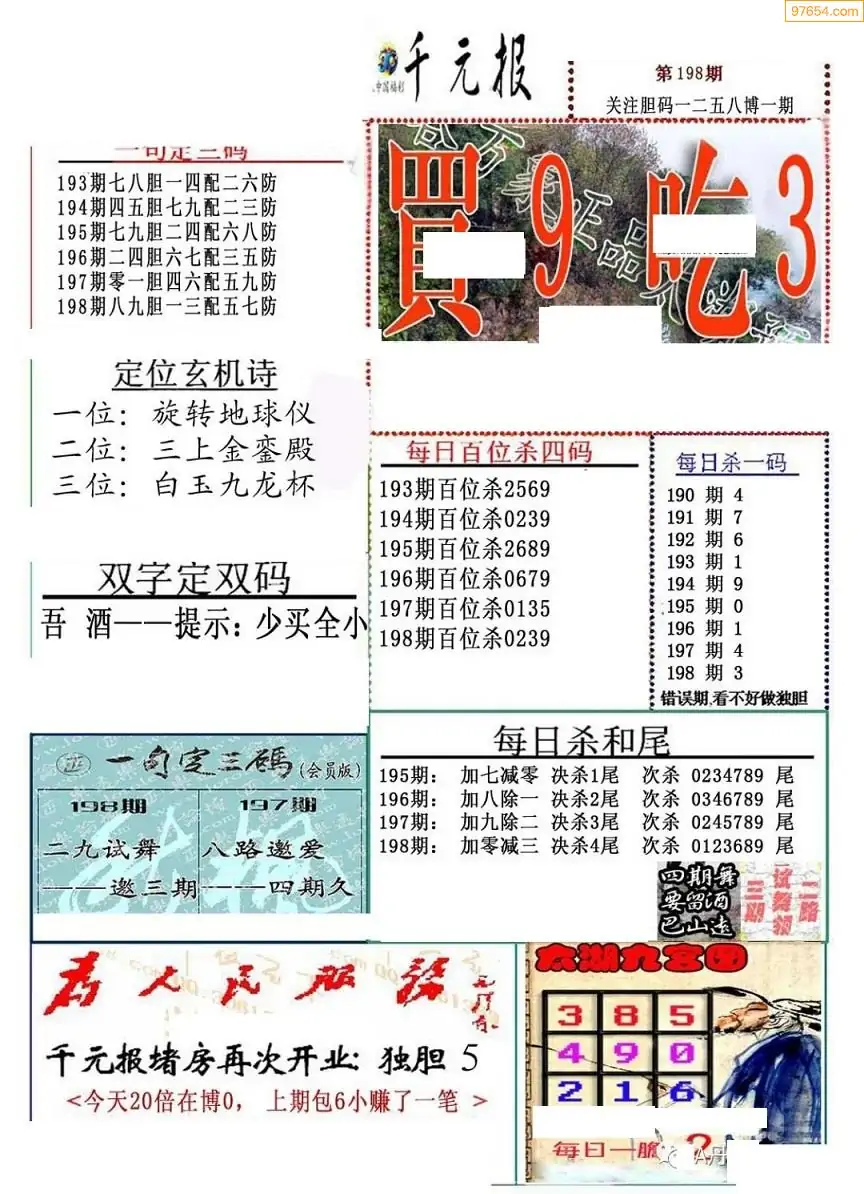 97654.com
中国福彩
千元报
第198期
关注胆码一二五八博一期
一句定三码
193期七八胆一四配二六防
194期四五胆七九配二三防
195期七九胆二四配六八防
196期二四胆六七配三五防
197期零一胆四六配五九防
198期八九胆一三配五七防
買9吃3
定位玄机诗
一位：旋转地球仪
二位：三上金銮殿
三位：白玉九龙杯
每日百位杀四码
193期百位杀2569
194期百位杀0239
195期百位杀2689
196期百位杀0679
197期百位杀0135
198期百位杀0239
每日杀一码
190 期 4
191 期 7
192 期 6
193 期 1
194 期 9
195 期 0
196 期 1
197 期 4
198 期 3
错误期,看不好做独胆
双字定双码
吾 酒——提示：少买全小
一句定三碼(会员版)
198期
二九试舞
——邀三期
197期
八路邀爱
——四期久
每日杀和尾
195期： 加七减零 决杀1尾 次杀 0234789 尾
196期： 加八除一 决杀2尾 次杀 0346789 尾
197期： 加九除二 决杀3尾 次杀 0245789 尾
198期： 加零减三 决杀4尾 次杀 0123689 尾
四期舞
要留酒
巴山远
二路
试舞领
三期
为人民服务
千元报堵房再次开业：独胆 5
<今天20倍在博0， 上期包6小赚了一笔 >
太湖九宫图
3 8 5
4 9 0
2 1 6
每日一胆 ?